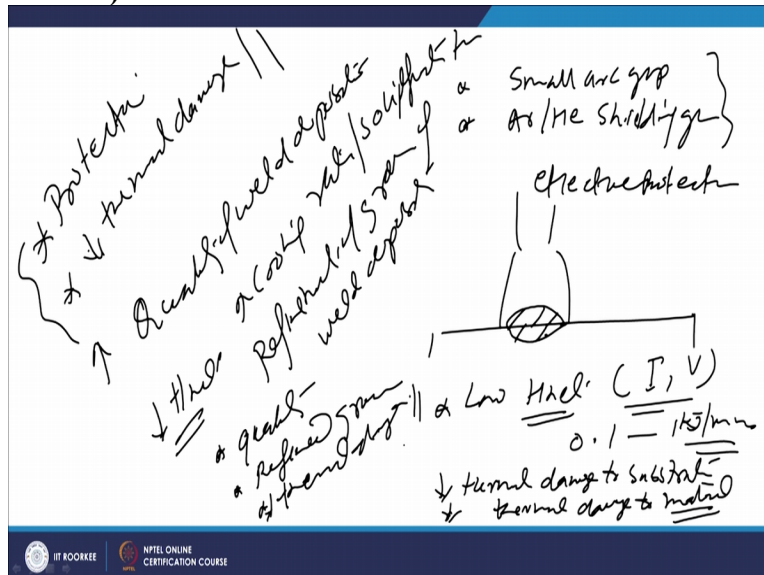 * Protection
* ↓ thermal damage ||
↑ Quality of weld deposit
↓ Hnet
* Cooling rate / solidification
Refinement of grain of
weld deposit
* quality
* Refined grain
* ↓ thermal damage ||
* Small arc gap
* Ar/He Shielding gas
effective protection
* Low Hnet (I, V)
0.1 — 1 kJ/mm
↓ thermal damage to substrate
↓ thermal damage to material
IIT ROORKEE
NPTEL ONLINE
CERTIFICATION COURSE